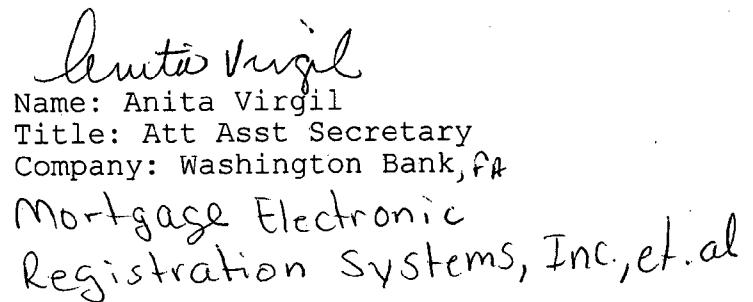 Anita Virgil
Name: Anita Virgil
Title: Att Asst Secretary
Company: Washington Bank, FA
Mortgage Electronic
Registration Systems, Inc., et. al